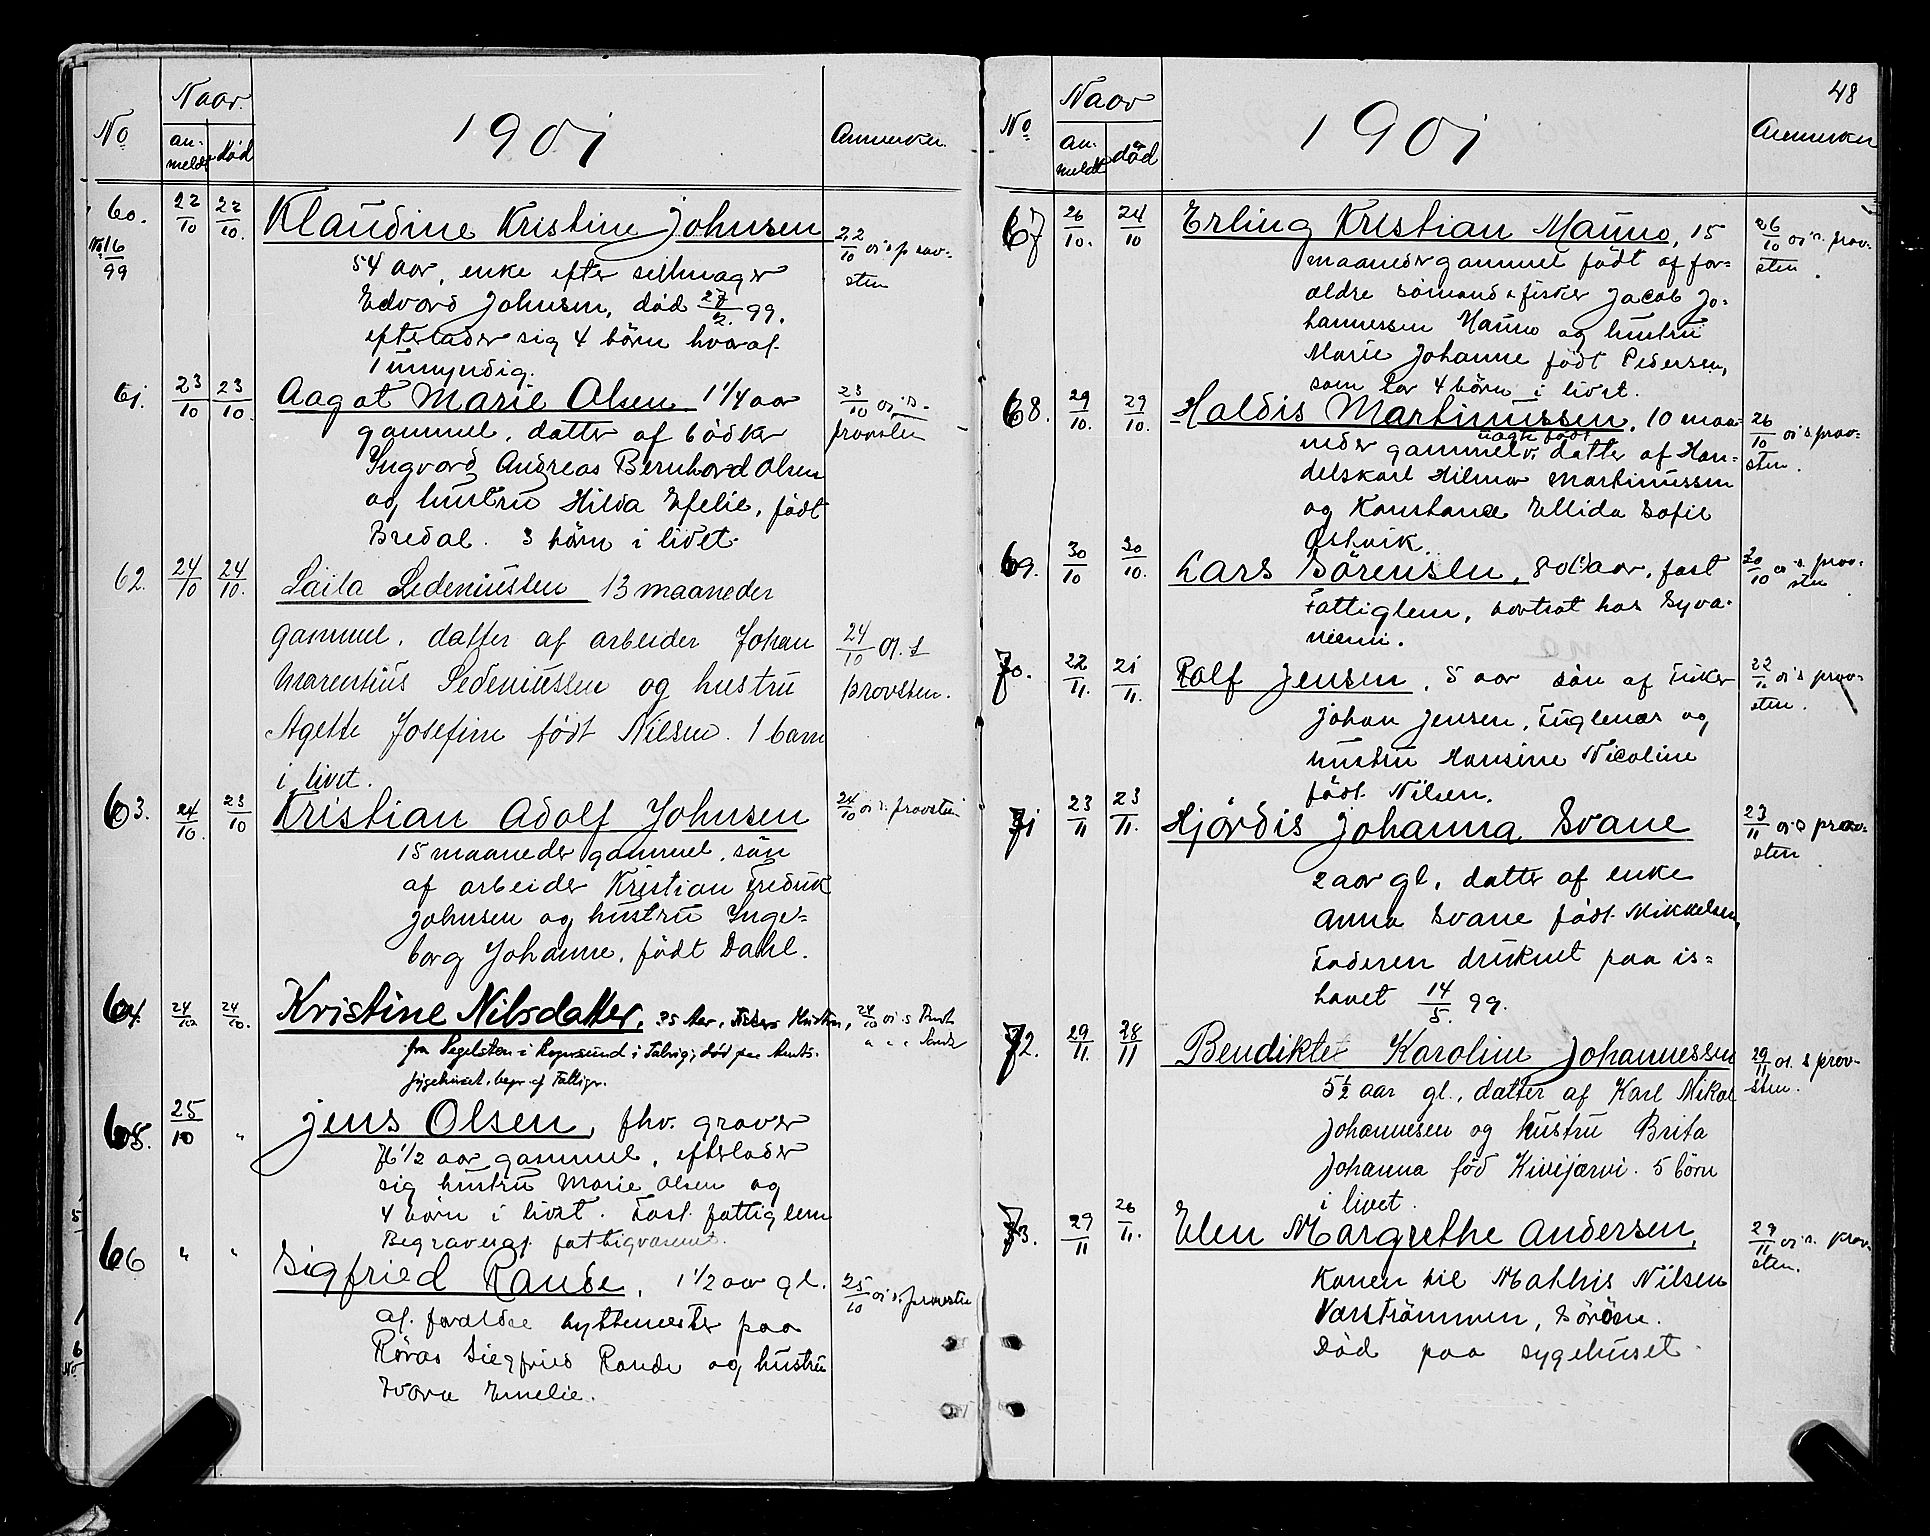 No
Naar.
an-
meldt død
1901
Anmerkn.
60.
No 16
99
22
10
22
10.
Klaudine Kristine Johnsen
54 aar, enke efter seilmager
Edvard Johnsen, død 27/2. 99.
efterlader sig 4 børn hvoraf
1 umyndig.
22/10 oi s prov-
sten
61.
23
10
23
10.
Aagot Marie Olsen 1 1/4 aar
gammel, datter af bødker
Ingvard Andreas Bernhard Olsen
og hustru Hilda Efelie, født
Bredal. 3 børn i livet.
23/10 oi s.
provsten
62.
24
10
24
10.
Laila Sedeniussen 13 maaneder
gammel, datter af arbeider Johan
Marentius Sedeniussen og hustru
Agette Josefine født Nilsen. 1 barn
i livet.
24/10 oi. s
provsten.
63.
24
10.
23
10
Kristian Adolf Johnsen
15 maaneder gammel, søn
af arbeider Kristian Fredrik
Johnsen og hustru Inge-
borg Johanne, født Dahl.
24/10 oi s. provsten
64.
24
10
24
10.
Kristine Nilsdatter, 35 Aar, Fiskers Hustru,
fra Segelsten i Rognsund i Talvig; død paa Amts-
sygehuset, begr. af Fattigv.
24/10 oi s
65.
25
10
"
Jens Olsen, fhv. graver
76 1/2 aar gammel, efterlader
sig hustru Marie Olsen og
4 børn i livet. Fast fattiglem
Begraves af fattigvæsenet.
66
"
"
Sigfried Rande, 1 1/2 aar gl.
af forældre hyttemester paa
Røros Siegfried Rande og hustru
Emelie.
25/10 oi s. provsten
48
No
Naar
an-
meldt død
1901
Anmerkn
67
26
10.
24
10
Erling Kristian Mauno, 15
maaneder gammel født af for-
ældre sømand & fisker Jacob Jo-
hannessen Mauno og hustru
Marie Johanne født Pedersen,
som har 4 børn i livet.
26/10 oi s. prov-
sten.
68.
29
10.
29
10.
Haldis Martinussen, 10 maa-
neder gammel, uægte født datter af Han-
delskarl Hilmar Martinussen
og Konstance Ellida Sofie
Østvik.
26/10 oi s prov-
sten.
69.
30
10
30
10.
Lars Sörensen, 80 aar, fast
Fattiglem, bortsat hos Syva-
niemi.
30/10 oi s. prov-
sten
70.
22
11.
21
11.
Rolf Jensen, 5 aar søn af Fisker
Johan Jensen, Fuglenæs og
hustru Hansine Nicoline
født Nilsen.
22/11 oi s prov-
sten.
71
23
11
23
11.
Hjördis Johanna Svane
2 aar gl, datter af enke
Anna Svane født Mikkelsen,
Faderen druknet paa is-
havet 14/5. 99.
23/11 oi s prov-
sten
72.
29
11.
28
11
Bendikte Karoline Johannessen
5 1/2 aar gl., datter af Karl Nikol.
Johannesen og hustru Brita
Johanna fød Kivijærvi. 5 børn
i livet.
29/11 oi s prov-
sten.
73.
29
11
26
11.
Elen Margrethe Andersen,
Konen til Mathis Nilsen
Varströmmen, Söröen.
Död paa sygehuset.
29/11 oi s. prov-
sten.